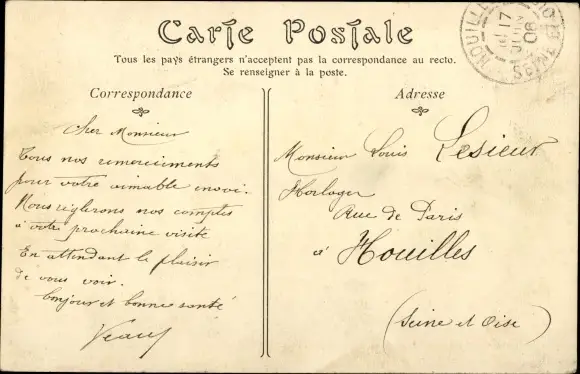 Carte Postale
Tous les pays étrangers n'acceptent pas la correspondance au recto.
Se renseigner à la poste.
Correspondance
Adresse
Cher Monsieur
Tous nos remerciements
pour votre aimable envoi.
Nous règlerons nos comptes
à votre prochaine visite
En attendant le plaisir
de vous voir.
bonjour et bonne santé
Monsieur Louis Lesieur
Horloger
Rue de Paris
à Houilles
(Seine et Oise)
HOUILLES
17
06
SEINE